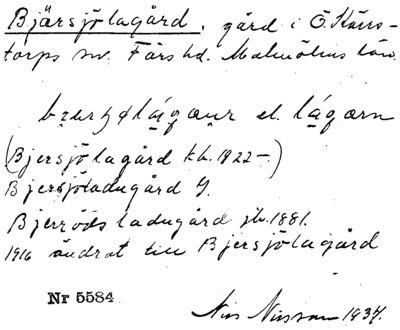 Bjärsjölagård, gård i Ö Kärrs-
torps sn. Färs hd. Malmöhus län.
el. lágǝrn
(Bjersjölagård kb. 1922–)
Bjersjöladugård G.
Bjerröds ladugård jb. 1881.
1916 ändrat till Bjersjölagård
Nr 5584.
Nils Nilsson 1937.